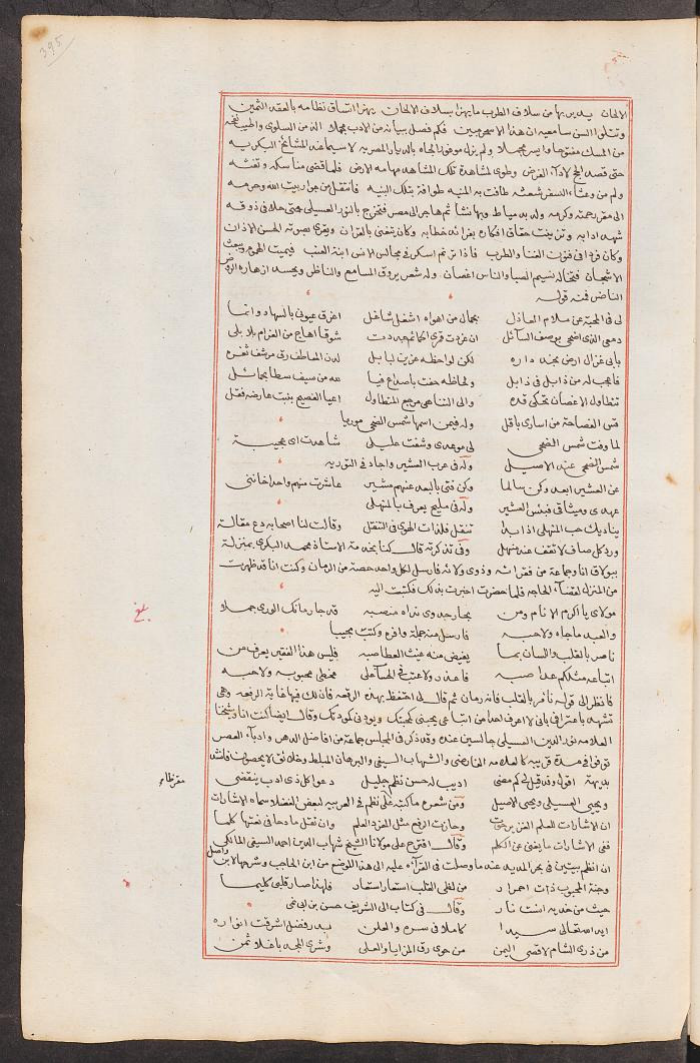 395
الالحان يدير بها من سلاف الطرب ما يهزا بسلاف الالحان يهزا اتساق نظامه بالعقد الثمين
وتتلو السن سامعيه ان هذا الا سحر مبين فكم فصل بيانه من الادب مجملا الذ من السلوى واطيب نفحة
من المسك مفتوحا ولم يزل موفور الجاه بالديار المصريه لا سيما عند المشايخ البكريه
حتى قصد الحج لاداء الفرض وطوى لمشاهدة تلك المشاهد مهامه الارض فلما قضى مناسكه وتفثه
ولم من وعثاء السفر شعثه طافت به المنيه طوافه بتلك البنيه فانتقل من جوار بيت الله وحرمه
الى مقر رحمته وكرمه ولد بدمياط وبها نشا ثم هاجر الى مصر فتخرج بالنور العسيلي حتى حلا في ذوقه
شهد ادابه وتزينت حقاق افكاره بفرائد خطابه وكان يتغنى بالقران ويقرع بصوته الحسن الاذان
وكان فردا في فنون الغنا والطرب فاذا ترنم اسكر في مجالس الانس ابنة العنب فيميت الهموم ويبعث
الاشجان فتخاله نسيم الصبا والناس اغصان وله شعر يروق السامع والناظر ويحسد ازهاره الروض
الناضر فمنه قوله
لي في المحبة عن ملام العاذل بجمال من اهواه اشغل شاغل اغرق عيوني بالسهاد وانما
دمعي الذي اضحى بوصف السائل ان غردت قمرى الحمائم جددت شوقا اهاج من الغرام بلابلي
بابي غزال ارض نجد داره لكن لواحظه عزين لبابل لدن المعاطف رق مرشف ثغره
فاعجب له من ذابل في ذابل ولحاظه حفت باصداغ فيا عه من سيف سطا بحمائل
تتطاول الاغصان تحكي قده والى التناهي مرجع المتطاول اعيا الفصيح بنبت عارضه فقل
قس الفصاحة من اسارى باقل وله فيمن اسمها شمس الضحى موريا
لما وفت شمس الضحى لي موعدي وشفت عليلي شاهدت اي عجيبة
شمس الضحى عند الاصيل وله في عرب العشير واجاد في التوريه
عن العشير ابعد وكن سالما وكن فتى بالبعد عنهم مشير عاشرت منهم واحدا خانني
عهدي وميثاقي فبئس العشير وله في مليح يعرف بالمنهلي
يناديك حب المنهلي اذا بدا تنقل فلذات الهوى في التنقل وقالت لنا اصحابه دع مقالة
ورد كل صاف لا تقف عند منهل وفي تذكرته قال كنا بخدمة الاستاذ محمد البكري بمنزله
ببولاق انا وجماعة من فقرائه وذوي ولائه فارسل لكل واحد حصة من الرمان وكنت انا قد ظهرت
من المنزل لقضاء الحاجه فلما حضرت اخبرت بذلك فكتبت اليه
مولاي يا اكرم الانام ومن بحار جدوى نداه منصبه قد جا رمانك الورى جملا
والعبد ما جاءه ولا حبه فارسل منه جملة وافرة وكتب مجيبا
ناصر بالقلب واللسان بما يفيض منه غيث العطا صبه فليس هذا الفقير يعرف من
اتباعه مثلكم غدا صبه فاعذر ولا عتب في الحساب على مخطى محبوبه ولا حبه
فانظر الى قوله ناصر بالقلب فانه رمان ثم قال لي احتفظ بهذه الرقعه فان لك فيها غاية الرفعه وهي
تشهد باعترافي باني لا اعرف احدا من اتباعي يحبني كحبك ويودني كودك وقال ايضا كنت انا وشيخنا
العلامه نور الدين العسيلي جالسين عنده وقد ذكر في المجلس جماعة من افاضل الدهر وادباء العصر
توفوا في مدة قريبه كالعلامه الفارضي والشهاب السيفي والبرهان المبلط وخلائق لا يحصون فانشد
بديهة اقول وقد قيل لي كم مضى اديب له حسن نظم جليل دعوا كل ذي ادب ينقضي
ويحيى العسيلي ويحيى الاصيل ومن شعره ما كتبه على نظم في العربيه لبعض الفضلا سماه الاشارات
ان الاشارات للعلم العزيز حوت وحازت الرفع مثل المفرد العلم وان تقل ما دحا في نعتها كلما
ففي الاشارات ما يغني عن الكلم وقال اقترح علي مولانا الشيخ شهاب الدين احمد السيفي المالكي
ان انظم بيتين في بحر المديد عند ما وصلت في القراءه عليه الى هذا الموضع من ابن الحاجب وشرحها لابن واصل
وجنة المحبوب ذات احمرار من لظى القلب استعار استعار فلهذا صار قلبي كليما
حيث من خديه انست نار وقال في كتاب الى الشريف حسن بن ابي نمي
ايد الله تعالى سيدا كاملا في سره والعلن بدر فضل اشرقت انواره
من ذرى الشام لاقصى اليمن من حوى رق المزايا والعلى وشرى المجد باغلا ثمن
بلغ